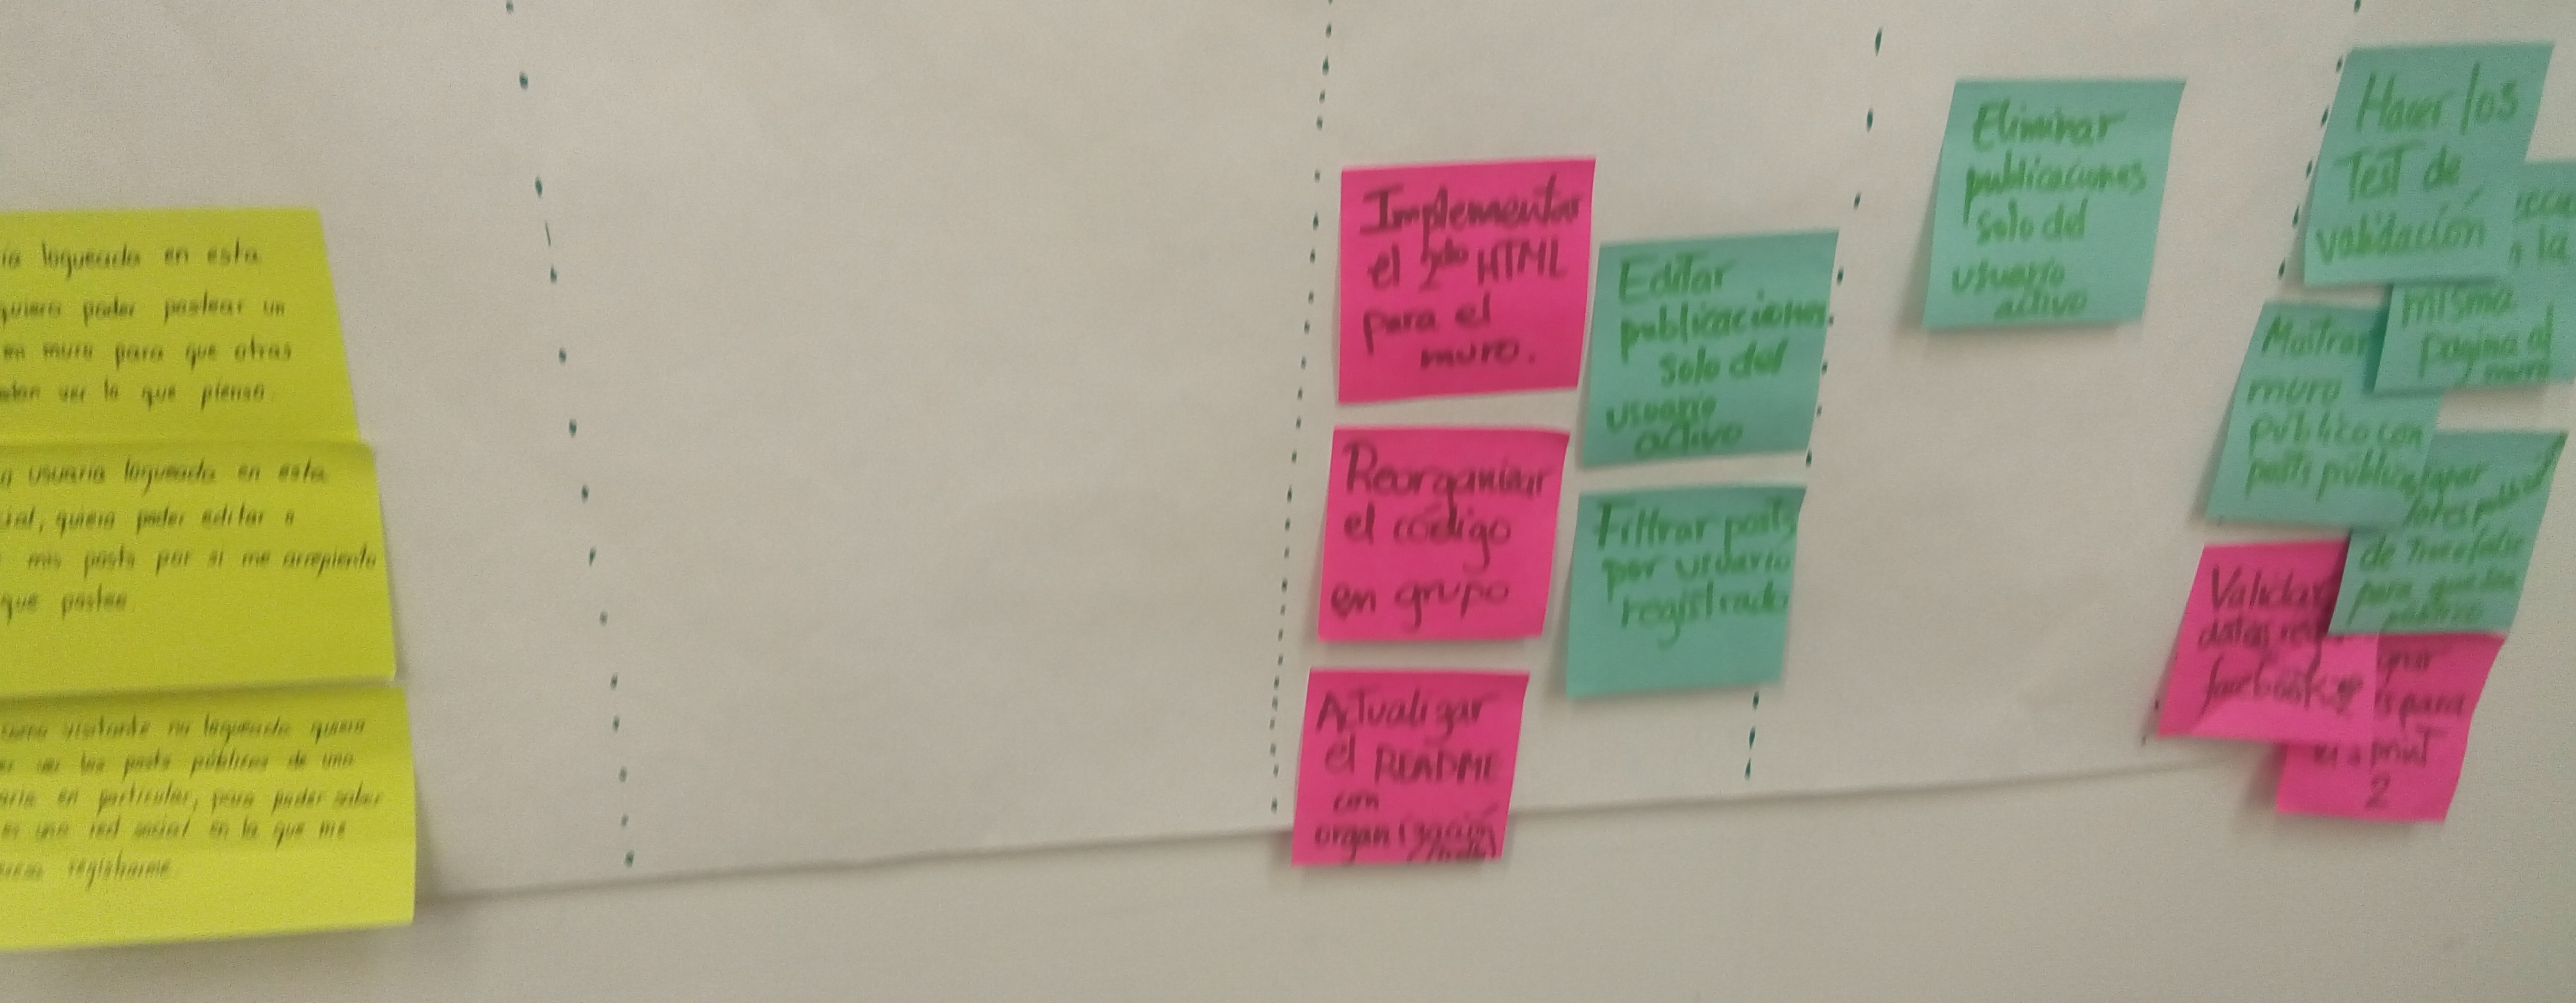 logueada en esta
quiero poder postear un
en muro para que otras
ver lo que pienso.
usuaria logueada en esta
quiero poder editar o
mis posts por si me arrepiento
que postee.
como visitante no logueado quiero
ver los posts públicos de una
en particular, para poder saber
es una red social en la que me
registrarme
Implementar
el 2do HTML
para el
muro.
Reorganizar
el código
en grupo
Actualizar
el README
con
organización
Editar
publicaciones
solo del
usuario
activo
Filtrar posts
por usuario
registrado
Eliminar
publicaciones
solo del
usuario
activo
Hacer los
Test de
validación
a la
misma
pagina al
muro
Mostrar
muro
publico con
posts públicos
de True/false
para que sea
público
Validar
datos
facebook
para
sprint
2